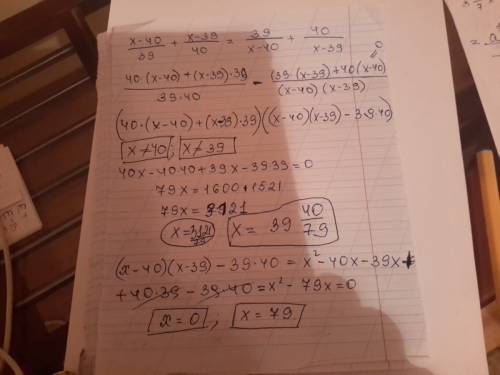 (x-40)/39 + (x-39)/40 = 39/(x-40) + 40/(x-39)
(40·(x-40)+(x-39)·39)/(39·40) - (39·(x-39)+40(x-40))/((x-40)(x-39)) = 0
(40·(x-40)+(x-39)·39)((x-40)(x-39)-39·40)
x≠40; x≠39
40x-40·40+39x-39·39=0
79x=1600+1521
79x=3121
x=3121/79 x= 39 40/79
(x-40)(x-39)-39·40=x²-40x-39x+
+40·39-39·40=x²-79x=0
x=0; x=79